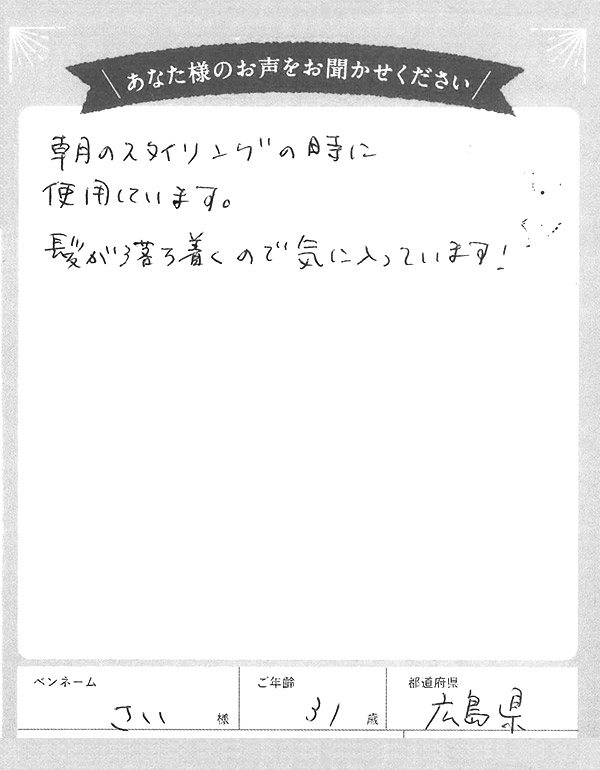 あなた様のお声をお聞かせください
朝のスタイリングの時に
使用しています。
髪が落ち着くので気に入っています!
ペンネーム さい 様
ご年齢 31 歳
都道府県 広島県